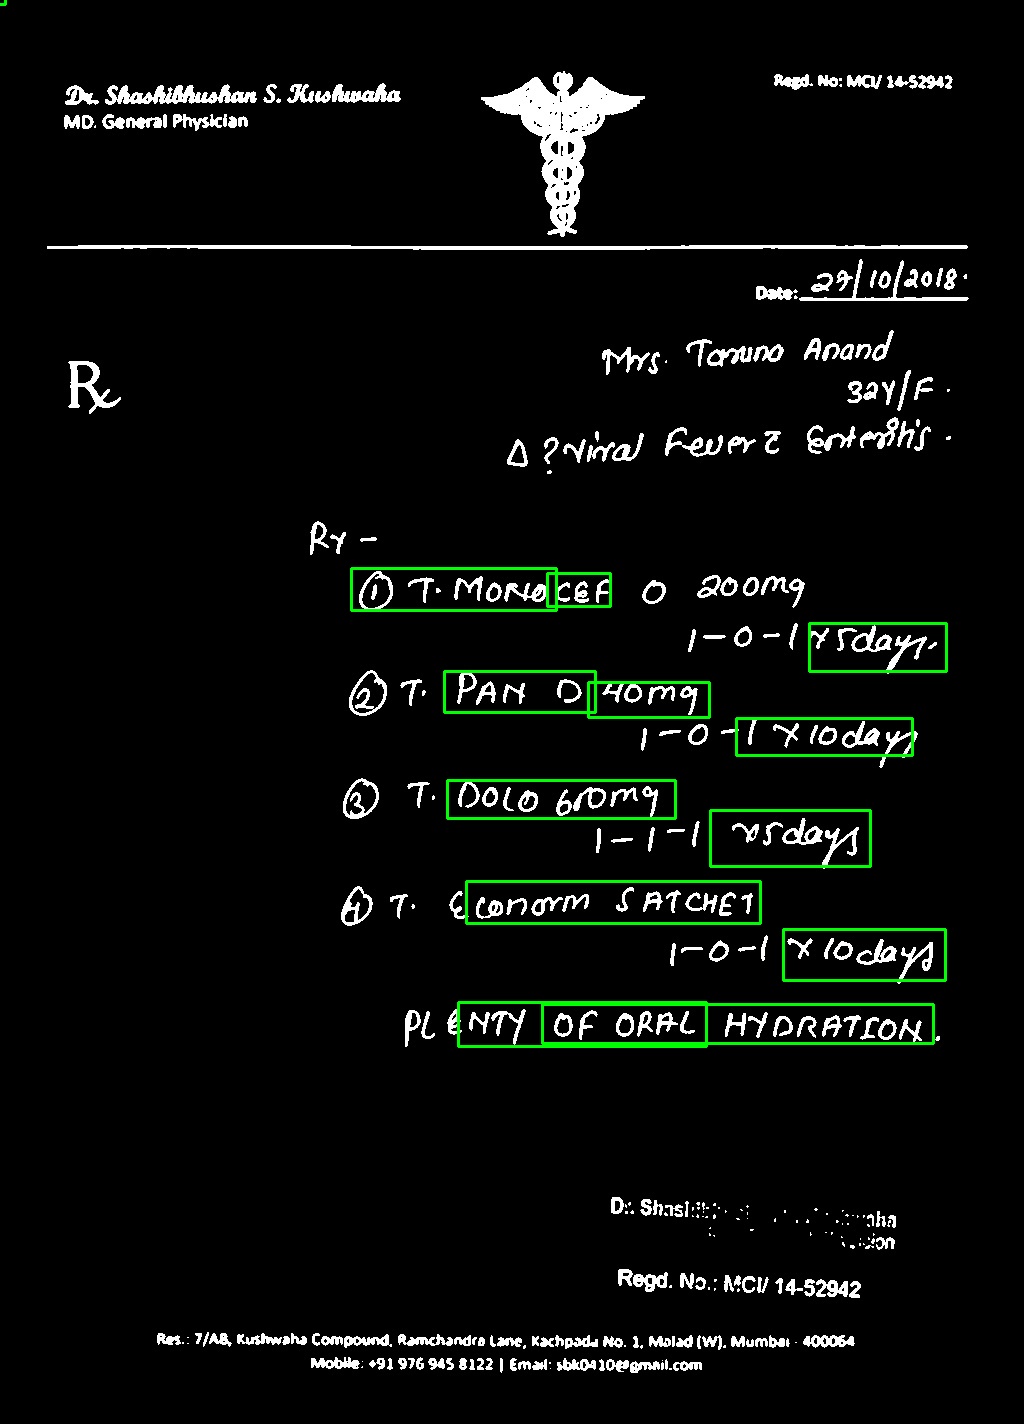 Dr. Shashibhushan S. Kushwaha
MD. General Physician
Regd. No: MCI/ 14-52942
Date: 27/10/2018.
Rx
Mrs. Taruna Anand
32Y/F.
Δ ? Viral Fever c̄ Enteritis.
RY -
① T. MONOCEF O 200mg
1-0-1 x 5days.
② T. PAN D 40mg
1-0-1 x 10days
③ T. DOLO 650mg
1-1-1 x5days
④ T. Econorm SATCHET
1-0-1 x 10days
PLENTY OF ORAL HYDRATION.
Dr.
Regd. No.: MCI/ 14-52942
Res.: 7/A8, Kushwaha Compound, Ramchandra Lane, Kachpada No. 1, Malad (W), Mumbai - 400064
Mobile: +91 976 945 8122 | Email: sbk0410@gmail.com